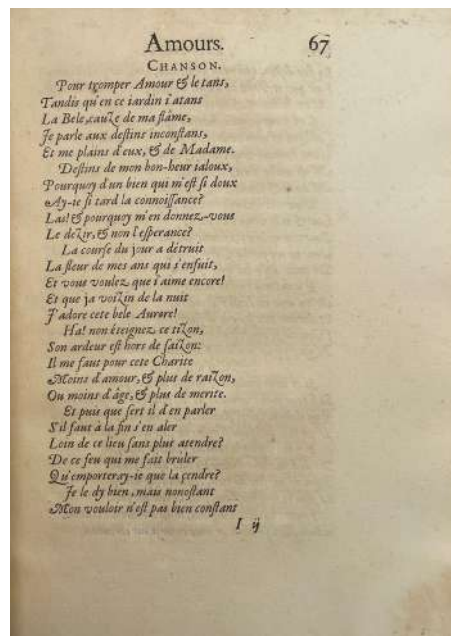 Amours. 67
CHANSON.
Pour tromper Amour & le tans,
Tandis qu'en ce iardin i'atans
La Bele, cauze de ma flâme,
Je parle aux deſtins inconſtans,
Et me plains d'eux, & de Madame.
Deſtins de mon bon-heur ialoux,
Pourquoy d'un bien qui m'eſt ſi doux
Ay-ie ſi tard la connoiſſance?
Las! & pourquoy m'en donnez-vous
Le dezir, & non l'eſperance?
La courſe du jour a détruit
La fleur de mes ans qui s'enfuit,
Et vous voulez que i'aime encore!
Et que ja voizin de la nuit
J'adore cete bele Aurore!
Ha! non éteignez ce tizon,
Son ardeur eſt hors de ſaizon:
Il me faut pour cete Charite
Moins d'amour, & plus de raizon,
Ou moins d'âge, & plus de merite.
Et puis que ſert il d'en parler
S'il faut à la fin s'en aler
Loin de ce lieu ſans plus atendre?
De ce feu qui me fait bruler
Qu'emporteray-ie que la çendre?
Je le dy bien, mais nonoſtant
Mon vouloir n'eſt pas bien conſtant
I ij